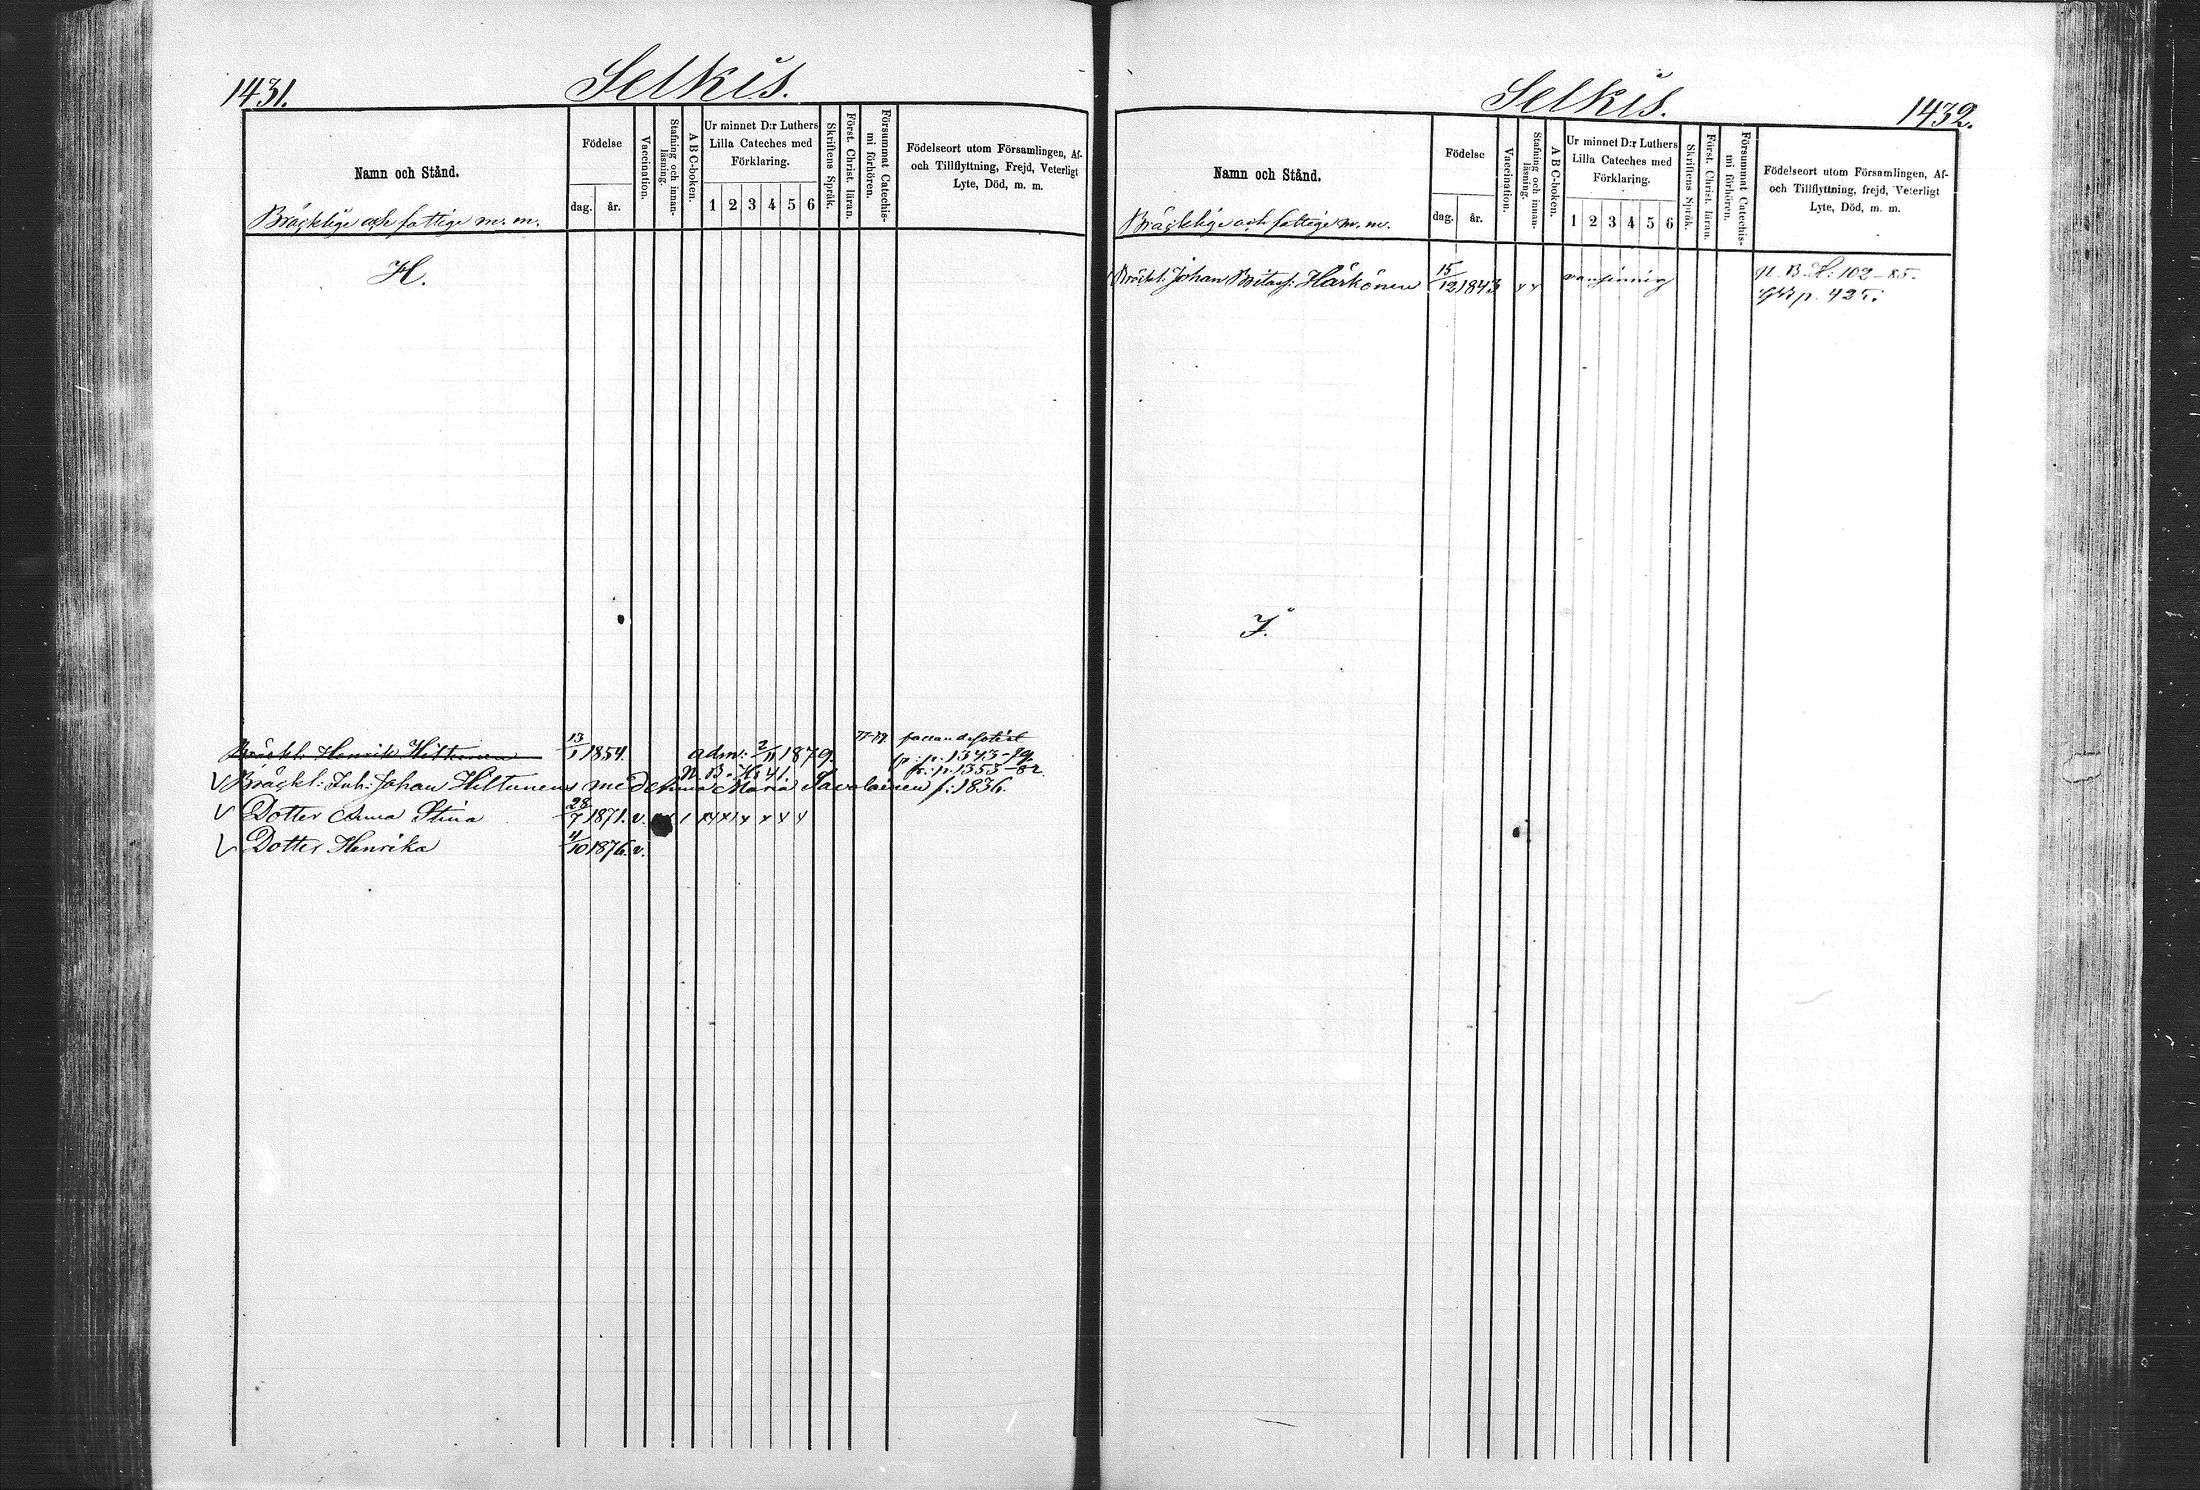 1431.
Selkis.
Namn och Stånd.
Födelse
dag. år.
Vaccination.
Stafning och innan-
läsning.
A B C-boken.
Ur minnet D:r Luthers
Lilla Cateches med
Förklaring.
1 2 3 4 5 6
Skriftens Språk.
Först. Christ. läran.
Försummat Catechis-
mi förhören.
Födelseort utom Församlingen, Af-
och Tillflyttning, Frejd, Veterligt
Lyte, Död, m. m.
Bräcklige och fattige m. m.
H.
Bräckl: Henrik Hiltunen 13/1 1854. adm: 2/11 1879. 77-77. fallandesotist
fr: p. 1343-79
N. B. H: 41. fr: p. 1353-82.
Bräckl: Inh: Johan Hiltunens med Anna Maria Savolainen f: 1836.
Dotter Anna Stina 28/7 1871. v.
Dotter Henrika 4/10 1876. v.
Selkis.
1432.
Namn och Stånd.
Födelse
dag. år.
Vaccination.
Stafning och innan-
läsning.
A B C-boken.
Ur minnet D:r Luthers
Lilla Cateches med
Förklaring.
1 2 3 4 5 6
Skriftens Språk.
Först. Christ. läran.
Försummat Catechis-
mi förhören.
Födelseort utom Församlingen, Af-
och Tillflyttning, frejd, Veterligt
Lyte, Död, m. m.
Bräcklige och fattige m. m.
Bräckl: Johan Härkönen 15/12 1843 x x vansinnig N. B. H: 102-85.
p. 425.
I.